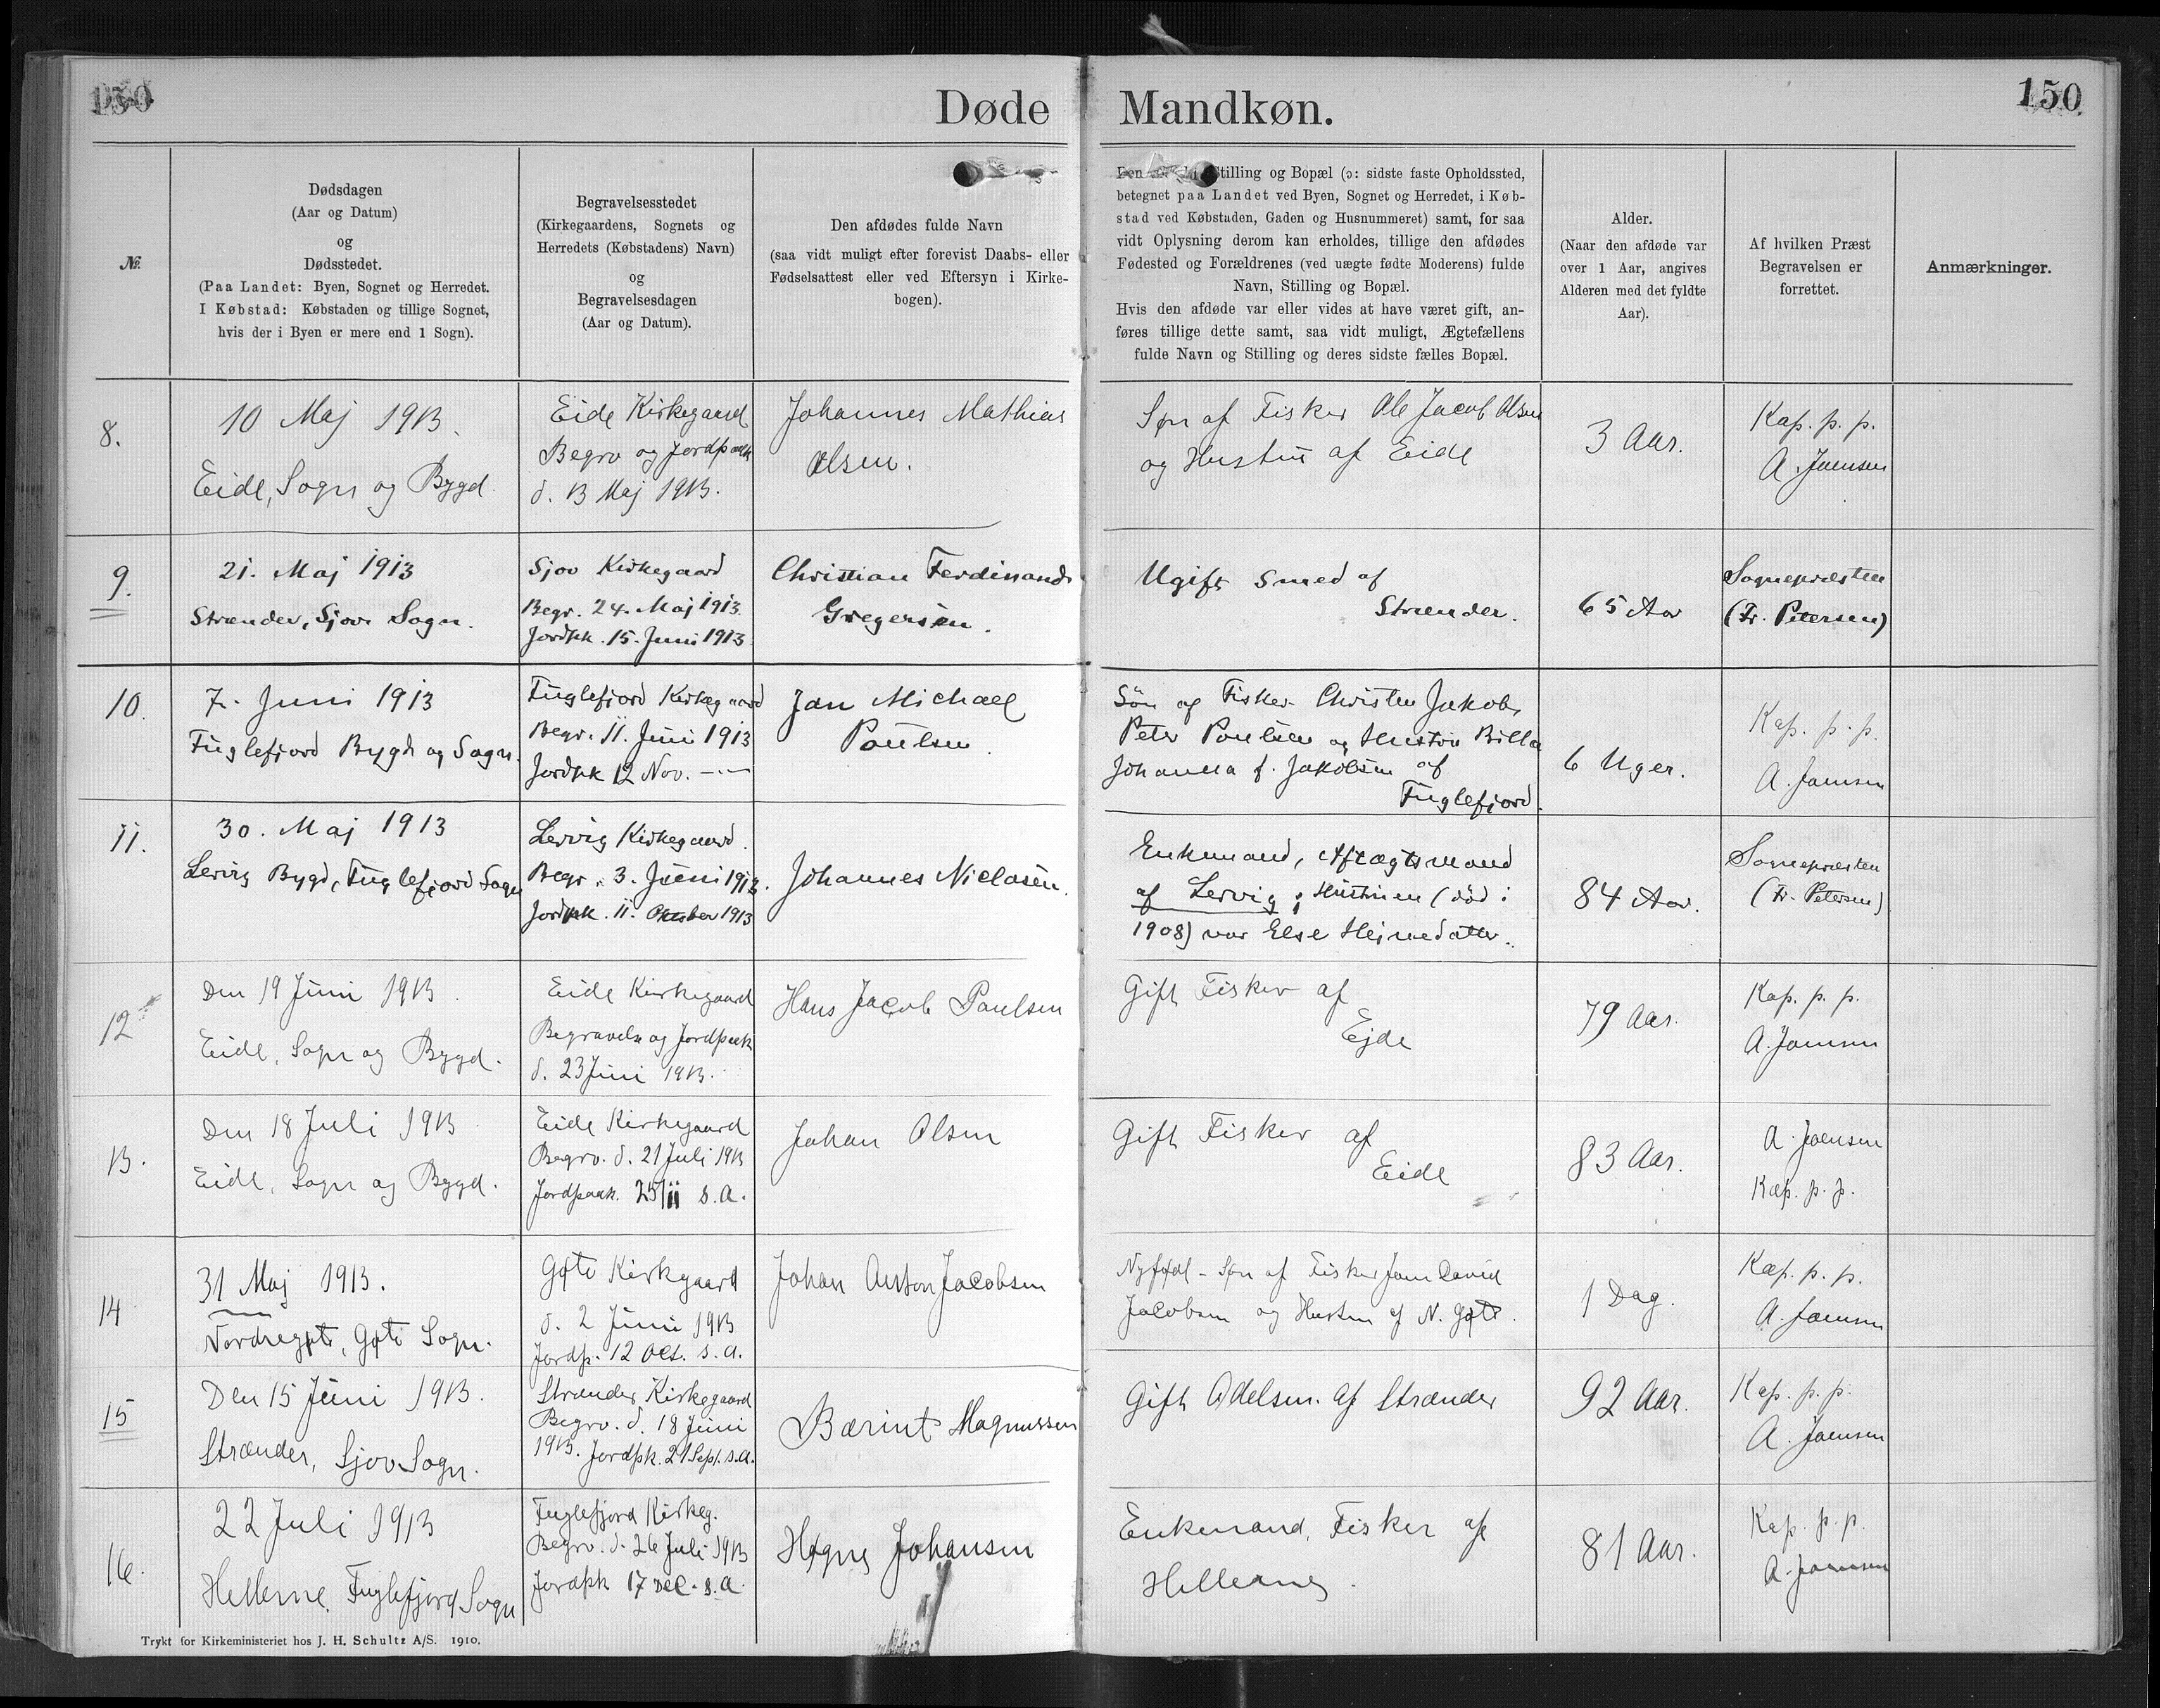 150
150
Døde Mandkøn.
№.
Dødsdagen
(Aar og Datum)
og
Dødsstedet.
(Paa Landet: Byen, Sognet og Herredet.
I Købstad: Købstaden og tillige Sognet,
hvis der i Byen er mere end 1 Sogn).
Begravelsesstedet
(Kirkegaardens, Sognets og
Herredets (Købstadens) Navn)
og
Begravelsesdagen
(Aar og Datum).
Den afdødes fulde Navn
(saa vidt muligt efter forevist Daabs- eller
Fødselsattest eller ved Eftersyn i Kirke-
bogen).
Stilling og Bopæl (ɔ: sidste faste Opholdssted,
betegnet paa Landet ved Byen, Sognet og Herredet, i Køb-
stad ved Købstaden, Gaden og Husnummeret) samt, for saa
vidt Oplysning derom kan erholdes, tillige den afdødes
Fødested og Forældrenes (ved uægte fødte Moderens) fulde
Navn, Stilling og Bopæl.
Hvis den afdøde var eller vides at have været gift, an-
føres tillige dette samt, saa vidt muligt, Ægtefællens
fulde Navn og Stilling og deres sidste fælles Bopæl.
Alder.
(Naar den afdøde var
over 1 Aar, angives
Alderen med det fyldte
Aar).
Af hvilken Præst
Begravelsen er
forrettet.
Anmærkninger.
8.
10 Maj 1913.
Eide, Sogn og Bygd.
Eide Kirkegaard
Begrv og Jordpaak
d. 13 Maj 1913.
Johannes Mathias
Olsen.
Søn af Fisker Ole Jacob Olsen
og Hustru af Eide
3 Aar.
Kap. p. p.
A. Joensen
9.
21. Maj 1913
Strænder, Sjov Sogn.
Sjov Kirkegaard
Begr. 24. Maj 1913.
Jordpk. 15. Juni 1913
Christian Ferdinand
Gregersen.
Ugift Smed af
Strænder.
65 Aar
Sognepræsten
(Fr. Petersen)
10.
7. Juni 1913
Fuglefjord Bygd og Sogn.
Fuglefjord Kirkegaard
Begr. 11. Juni 1913
Jordpk 12 Nov. -"-
Jan Michael
Poulsen.
Søn af Fisker Christen Jakob
Peter Poulsen og Hustru Billa
Johanna f. Jakobsen af
Fuglefjord.
6 Uger.
Kap. p. p.
A. Joensen
11.
30. Maj 1913
Lervig Bygd, Fuglefjord Sogn
Lervig Kirkegaard.
Begr. 3. Juni 1913.
Jordpk. 11. Oktober 1913
Johannes Niclasen.
Enkemand, Aftægtsmand
af Lervig; Hustruen (død i
1908) var Else Hejnedatter.
84 Aar.
Sognepræsten
(Fr. Petersen)
12
Den 19 Juni 1913.
Eide, Sogn og Bygd.
Eide Kirkegaard
Begravelse og Jordpaak
d. 23 Juni 1913.
Hans Jacob Poulsen
Gift Fisker af
Ejde
79 Aar.
Kap. p. p.
A. Joensen
13.
Den 18 Juli 1913
Eide, Sogn og Bygd.
Eide Kirkegaard
Begrv. d. 21 Juli 1913
Jordpaak. 25/11 s.a.
Johan Olsen
Gift Fisker af
Eide
83 Aar.
A. Joensen
Kap. p. p.
14
31 Maj 1913.
Nordregøte, Gøte Sogn.
Gøte Kirkgaard
d. 2 Juni 1913
Jordp. 12 Oct. s.a.
Johan Anton Jacobsen
Nyfødt - Søn af Fisker Joen David
Jacobsen og Hustru af N. Gøte.
1 Dag.
Kap. p. p.
A. Joensen
15
Den 15 Juni 1913.
Strænder, Sjov Sogn.
Strænder Kirkegaard
Begrv. d. 18 Juni
1913. Jordpk. 21 Sept. s.a.
Bærint Magnussen
Gift Odelsm. af Strænder
92 Aar.
Kap. p. p.
A. Joensen
16.
22 Juli 1913
Hellerne, Fuglefjord Sogn
Fuglefjord Kirkeg.
Begrv. d. 26 Juli 1913
Jordpk 17 Dec. s.a.
Høgne Johansen
Enkemand, Fisker af
Hellerne.
81 Aar.
Kap. p. p.
A. Joensen
Trykt for Kirkeministeriet hos J. H. Schultz A/S. 1910.